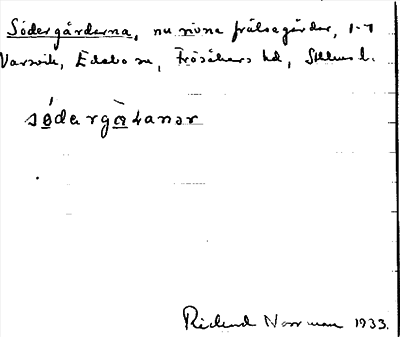 Södergårdarna, nu rivna frälsegårdar, 1-7
Varsvik, Edebo sn, Frösåkers hd, Sthlms l.
södərgå̀ɖanər
Rickard Norrman 1933.